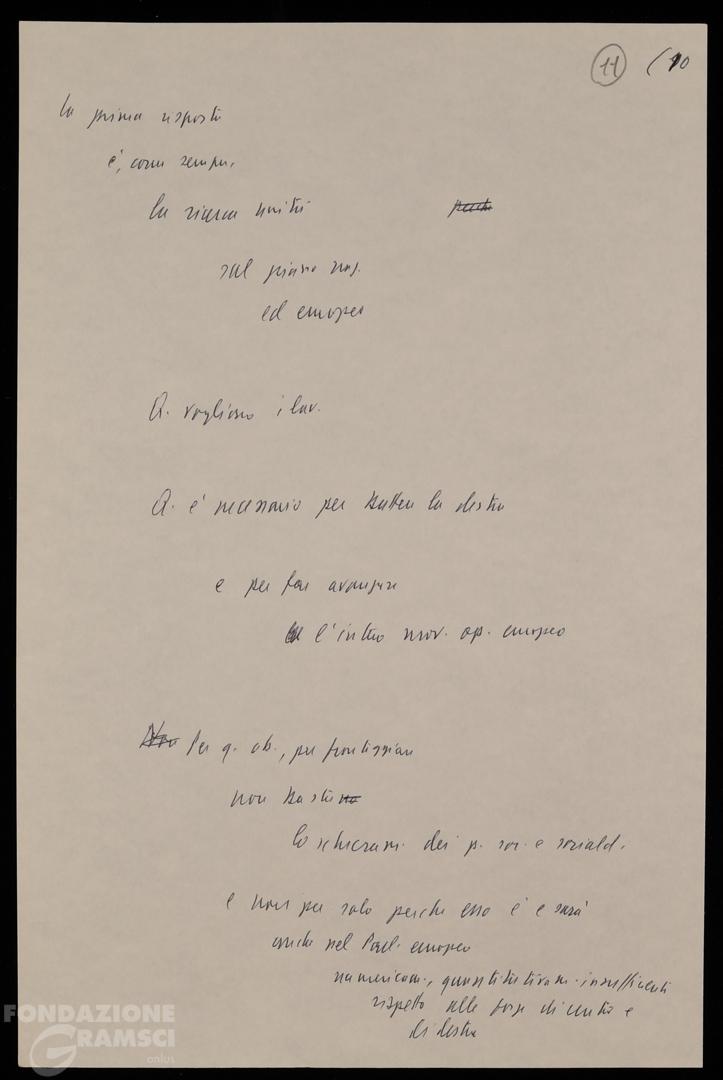 11 (10
la prima risposta
è, come sempre,
la ricerca unità
perché
sul piano naz.
ed europeo
Q. vogliono i lav.
Q. è necessario per battere la destra
e per far avanzare
l'intero mov. op. europeo
Non Per q. ob., per fronteggiare
non basta
lo schieram. dei p. soc. e sociald.
e non per solo perché esso è e sarà
anche nel Parl. europeo
numericam., quantitativam. insufficienti
rispetto alle forze di centro e
di destra
FONDAZIONE
GRAMSCI
onlus